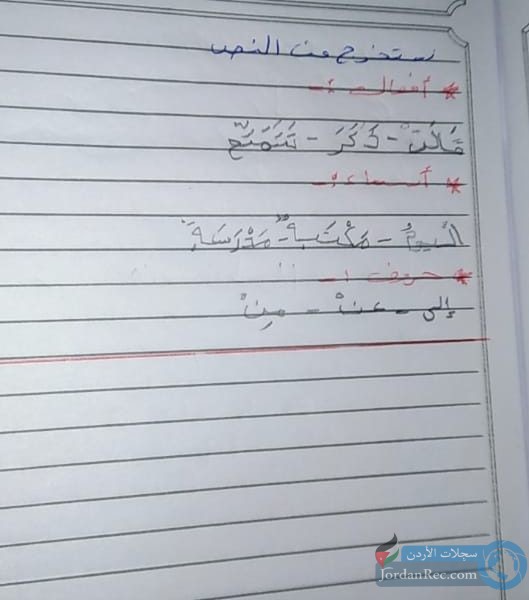 نستخرج من النص
* أفعال :-
قَالَتْ - ذَكَرَ - تَتَمَتَّع
* أسماء :-
اليومُ - مَكْتَبة - مَدْرَسَة
* حروف :-
إلى - عنْ - مِنْ
سجلات الأردن
JordanRec.com